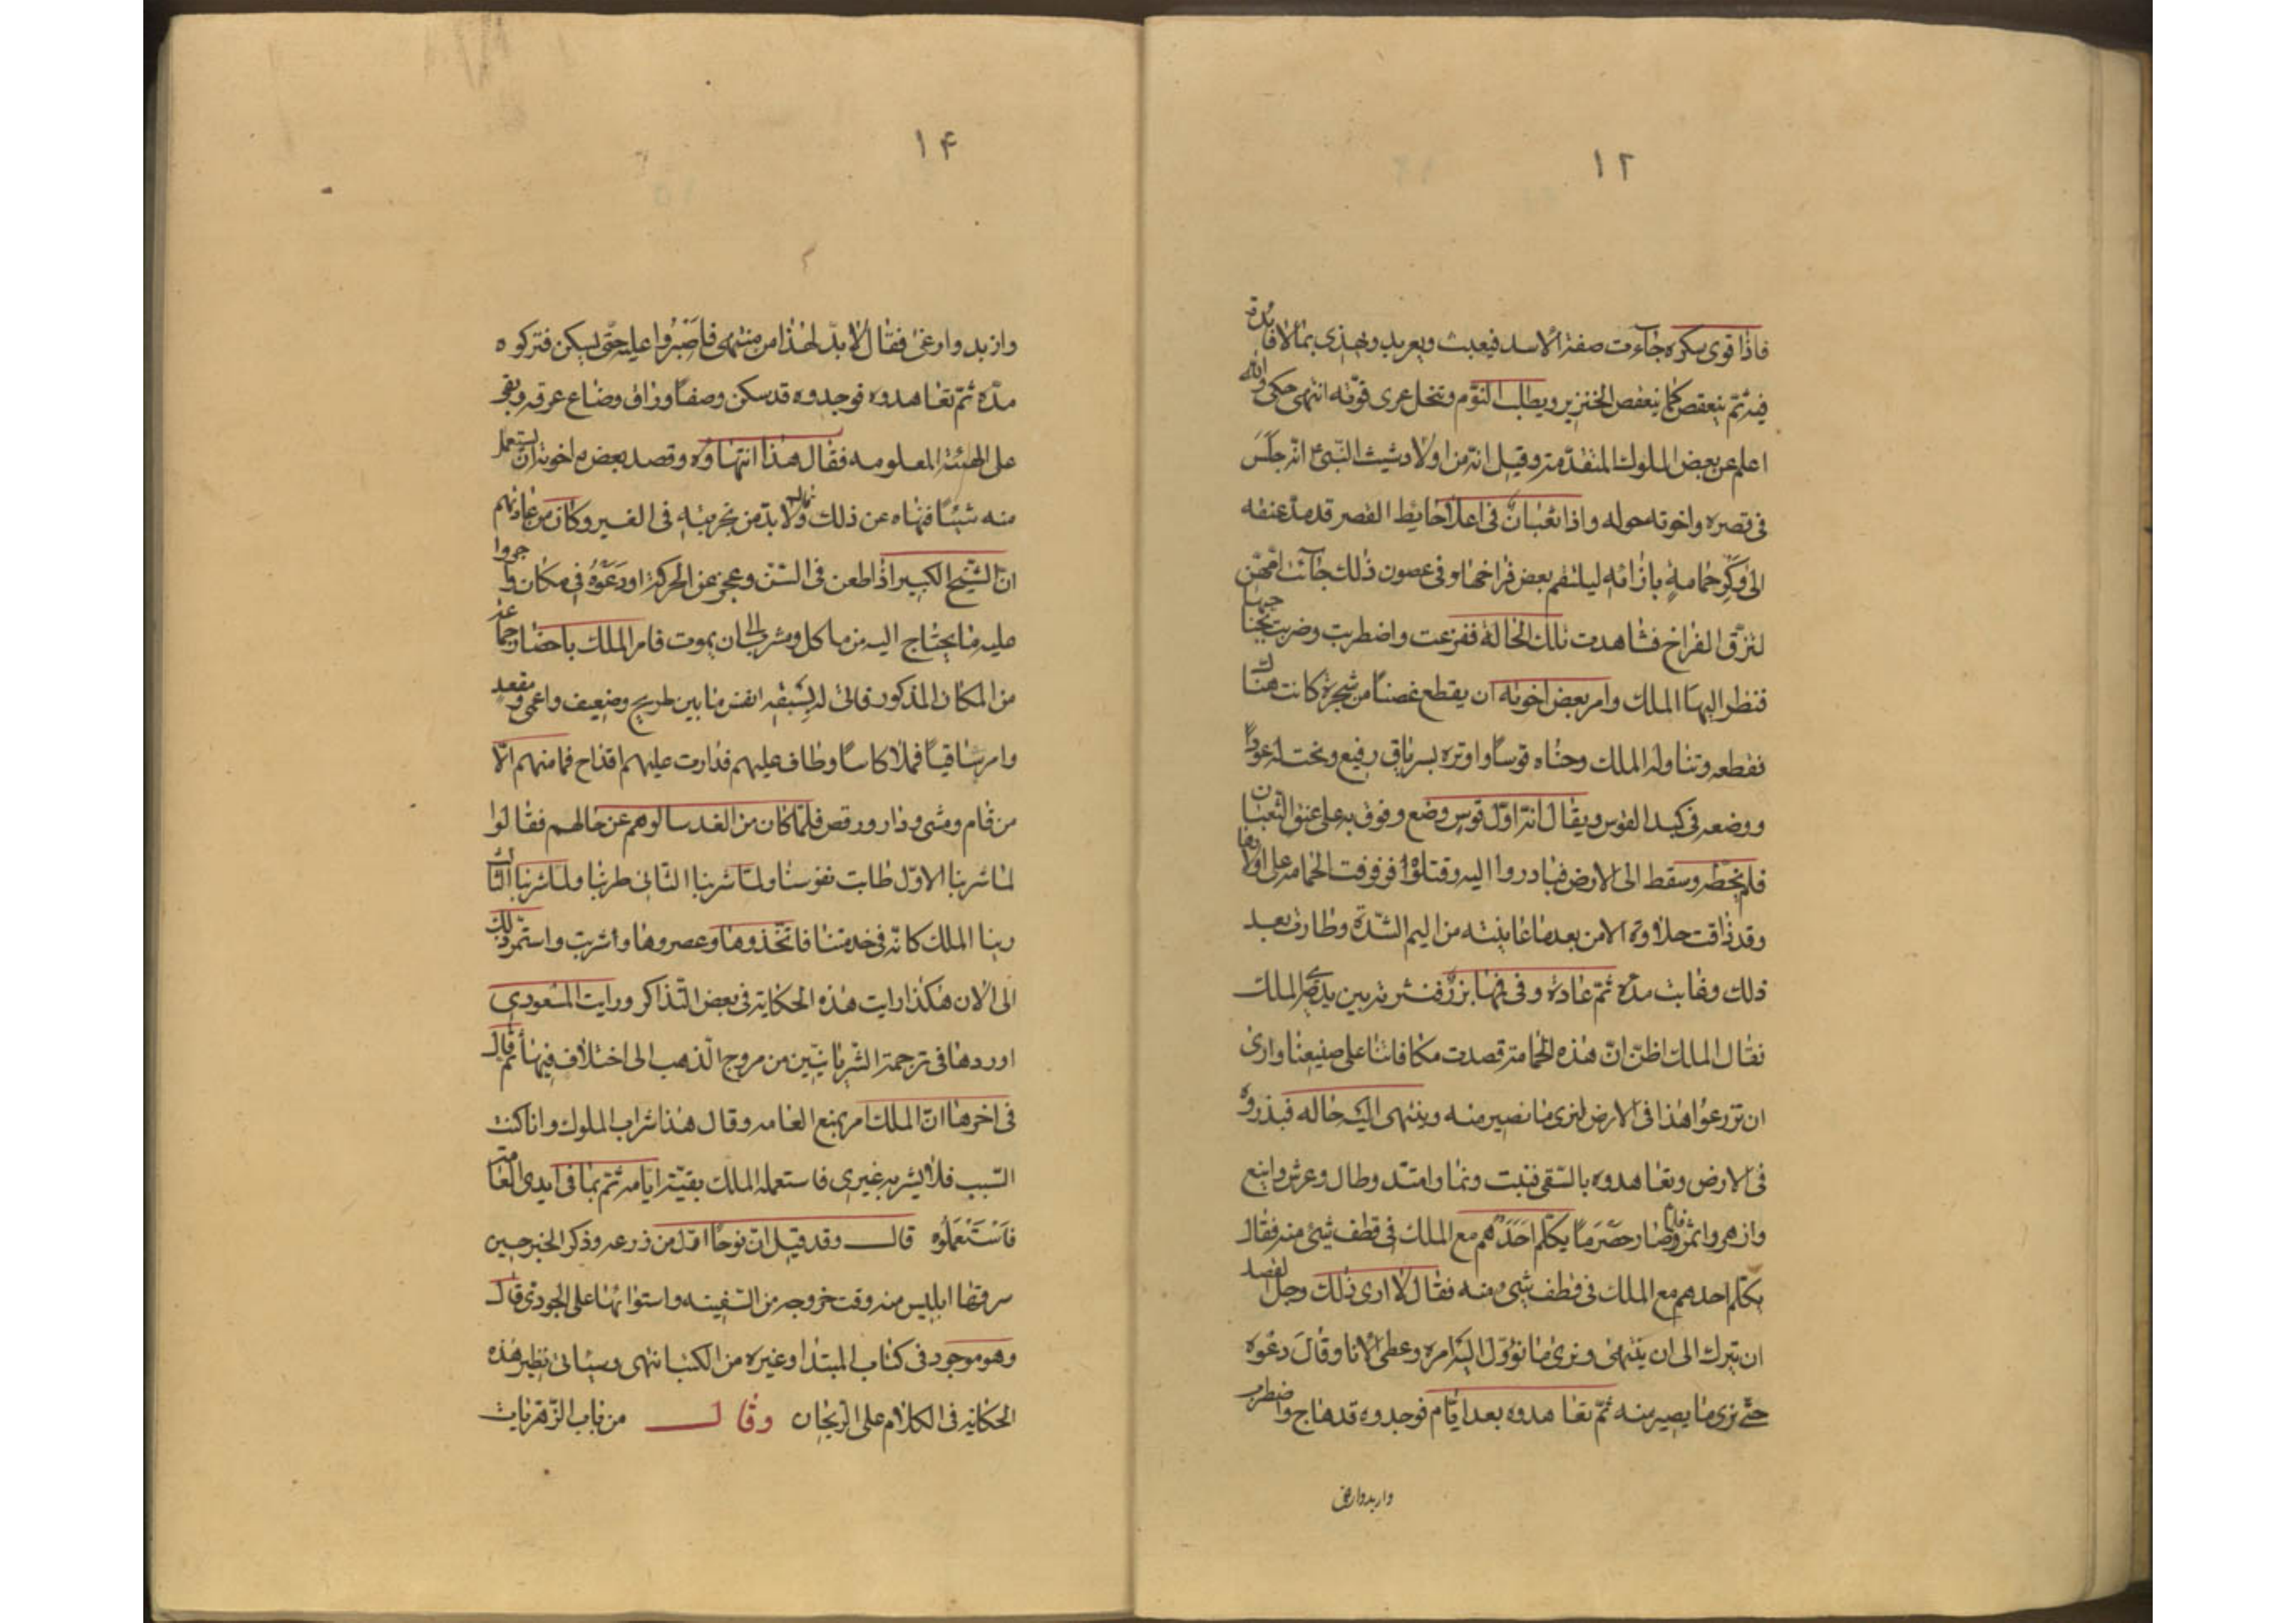 ١٢
فاذا قوى سكره جاءت صفة الاسد فيعبث ويعربد ويهذى بما لا فائدة
فيه ثم ينعقص كما ينعقص الخنزير ويطلب النوم وتنحل عرى قوته انتهى حكى والله
اعلم عن بعض الملوك المتقدمة وقيل انه من اولاد شيث النبى انه جلس
فى قصره واخوته حوله واذا ثعبان فى اعلا حايط القصر قد مد عنقه
الى وكر حمامة بازائه ليلتقم بعض فراخها وفى غصون ذلك جائت امهن
لتزق الفراخ فشاهدت تلك الحالة ففزعت واضطربت وضربت بجناحيها
فنظر اليها الملك وامر بعض اخوته ان يقطع غصنا من شجرة كانت هناك
فقطعه وتناوله الملك وحناه قوسا واوتره بسرياق رفيع ونحت له عودا
ووضعه فى كبد القوس ويقال انه اول قوس وضع وفوق به على عنق الثعبان
فلم يخطه وسقط الى الارض فبادروا اليه وقتلوه فرفرفت الحمامة على اولادها
وقد ذاقت حلاوة الامن بعد ما عاينته من اليم الشدة وطارت بعد
ذلك وغابت مدة ثم عادة وفى فمها بزر فنثرته بين يدى الملك
فقال الملك اظن ان هذه الحمامة قصدت مكافاتنا على صنيعنا وارى
ان تزرعوا هذا فى الارض لنرى ما تصير منه وينتهى اليه حاله فبذروه
فى الارض وتعاهدوه بالسقى فنبت ونما وامتد وطال وعرش واينع
وازهر واثمر فلما وصار حصرما يكلم احدهم مع الملك فى قطف شئ منه فقال
يكلم احدهم مع الملك فى قطف شئ منه فقال لا ارى ذلك وجل لقصد
ان تترك الى ان ينتهى ونرى ما تؤول اليه امره وعطى الانا وقال دعوه
حتى نرى ما يصير منه ثم تعاهدوه بعد ايام فوجدوه قد هاج واضطرب
وازبد وارغى
١۴
وازبد وارغى فقال لا بد لهذا من منتهى فاصبروا عليه حتى يسكن فتركوه
مدة ثم تعاهدوه فوجدوه قد سكن وصفا وراق وضاع عرقه وبقى
على الهيئة المعلومه فقال هذا انتهاؤه وقصد بعض من اخوته ان يستعمل
منه شيئا فنهاه عن ذلك وقال لا بد من تجربته فى الغير وكان من عادتهم
ان الشيخ الكبير اذا طعن فى السن وعجز عن الحركة اودعوه فى مكان واجروا
عليه ما يحتاج اليه من ماكل ومشرب الى ان يموت فامر الملك باحضار جماعة
من المكان المذكور فاتى له بسبعة انفس ما بين طريح وضعيف واعمى ومقعد
وامر ساقيا فملا كاسا وطاف عليهم فدارت عليهم اقداح فما منهم الا
من قام ومشى ودار ورقص فلما كان من الغد سالوهم عن حالهم فقالوا
لما شربنا الاول طابت نفوسنا ولما شربنا الثانى طربنا ولما شربنا الثالث
رينا الملك كانه فى خدمتنا فاتخذوها وعصروها واشربت واستمر ذلك
الى الان هكذا رايت هذه الحكاية فى بعض التذاكر ورايت المسعودى
اوردها فى ترجمة السريانيين من مروج الذهب الى اختلاف فيها ثم قال
فى اخرها ان الملك امر بمنع العامه وقال هذا شراب الملوك وانا كنت
السبب فلا يشربه غيرى فاستعمله الملك بقية ايامه ثم نما فى ايدى العامة
فاستعملوه قال وقد قيل ان نوحا اول من زرعه وذكر الخبر حين
سرقها ابليس منه وقت خروجه من السفينه واستوائها على الجودى قال
وهو موجود فى كتاب المبتدا وغيره من الكتب انتهى وسياتى نظير هذه
الحكايه فى الكلام على الريحان وقال من باب الزهريات